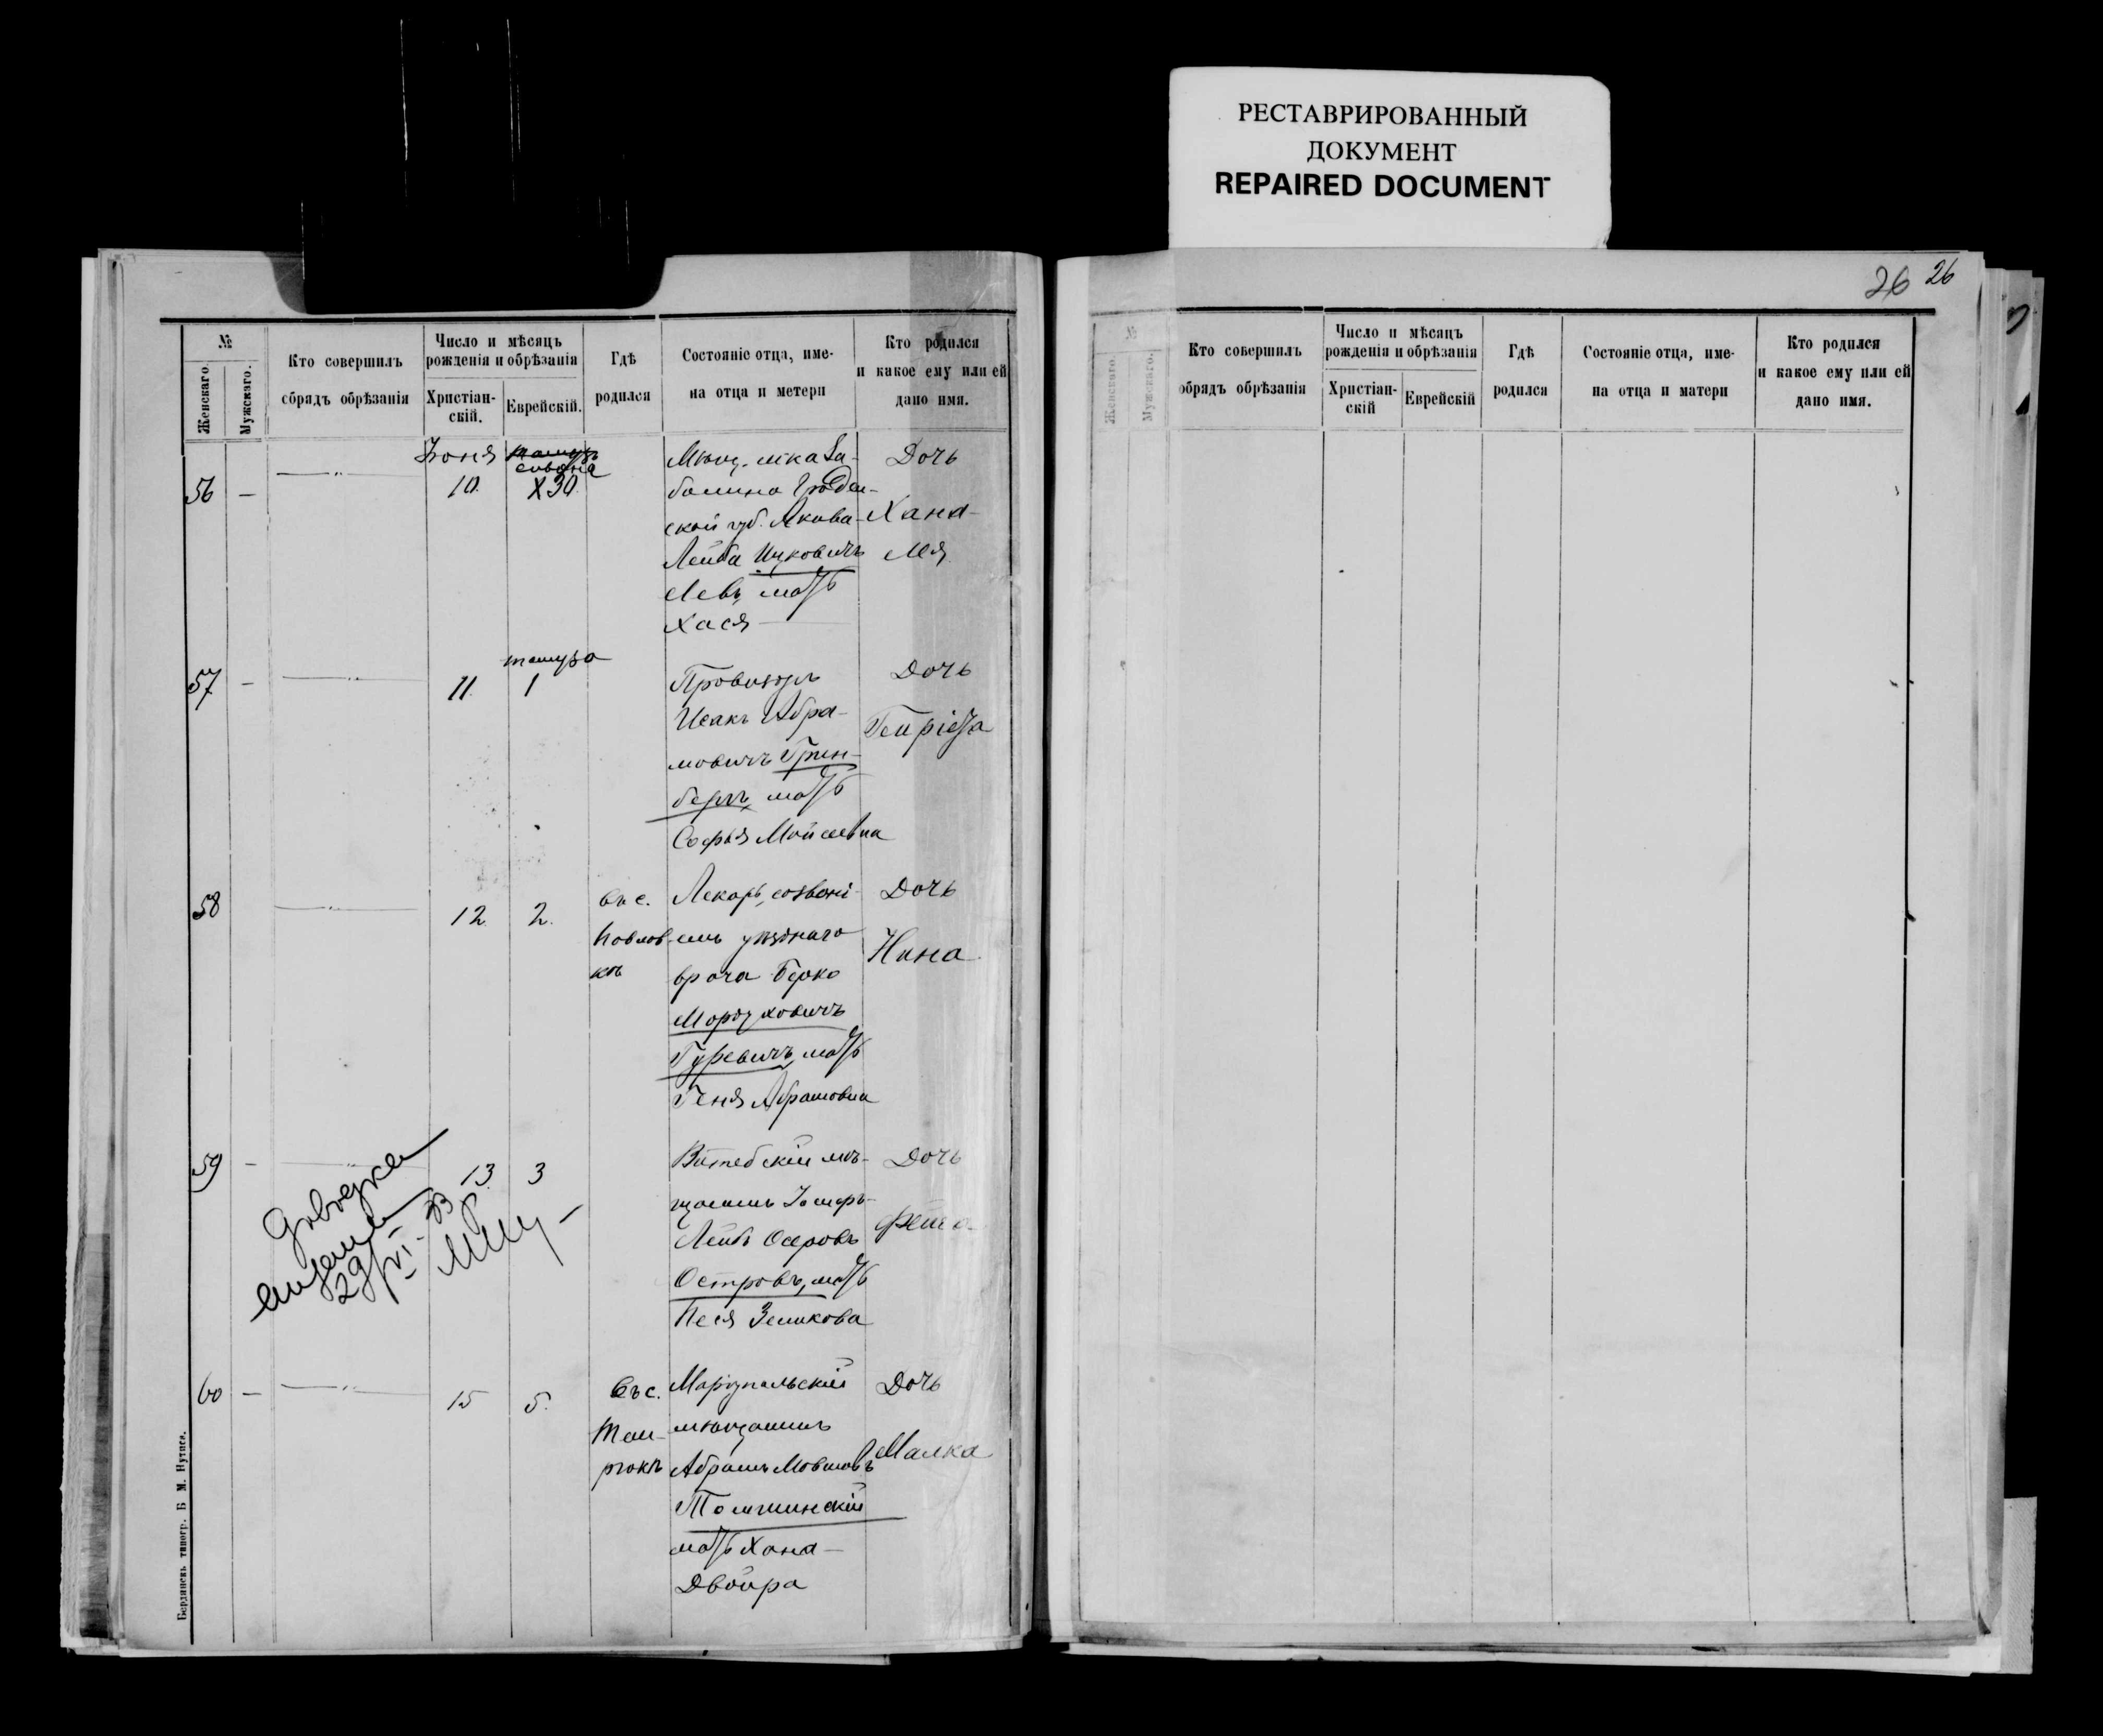 РЕСТАВРИРОВАННЫЙ
ДОКУМЕНТ
REPAIRED DOCUMENT
26 26
№
Женскаго.
Мужскаго.
Кто совершилъ
обрядъ обрѣзанія
Число и мѣсяцъ
рожденія и обрѣзанія
Христіан-
скій.
Еврейскій.
Гдѣ
родился
Состояніе отца, име-
на отца и метери
Кто родился
и какое ему или ей
дано имя.
56 —
Іюня
10.
сивана
X30
Мѣщ. мѣка
Гроден-
ской губ. Якова-
Лейба Ицковичъ
Левъ, мать
Хася
Дочь
Хана-
Лія
57 —
11.
тамуза
1
Провизоръ
Исакъ Абра-
мовичъ Грин-
бергъ, мать
Софья Мойсеевна
Дочь
Генріета
58
12.
2.
въ с.
Павлов-
кѣ
Лекарь,
уѣзднаго
врача Берко
Мордуховичъ
Гуревичъ, мать
Геня Абрамовна
Дочь
Нина
59 —
13.
3
Витебскій мѣ-
щанинъ
Лейбъ Осеровъ
Островъ, мать
Песя Зеликова
Дочь
Фейга
29/VI - 33
60 —
15
5.
Въ с.
Маріупольскій
мѣщанинъ
Абрамъ Мовшовъ
мать Хана-
Двойра
Дочь
Малка
Бердянскъ типогр. Б М. Нутиса.
№
Женскаго.
Мужскаго.
Кто совершилъ
обрядъ обрѣзанія
Число и мѣсяцъ
рожденія и обрѣзанія
Христіан-
скій
Еврейскій
Гдѣ
родился
Состояніе отца, име-
на отца и матери
Кто родился
и какое ему или ей
дано имя.